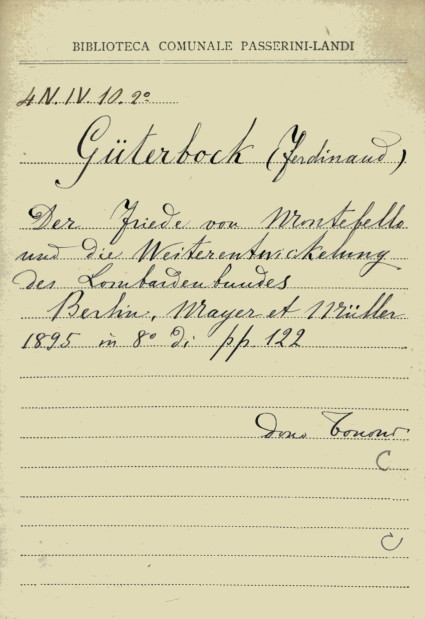 BIBLIOTECA COMUNALE PASSERINI-LANDI
4N.IV.10.2º
Güterbock (Ferdinand)
Der Friede von Montebello
und die Weiterentwickelung
des Lombardenbundes
Berlin, Mayer et Müller
1895 in 8º di pp 122
dono
C
C